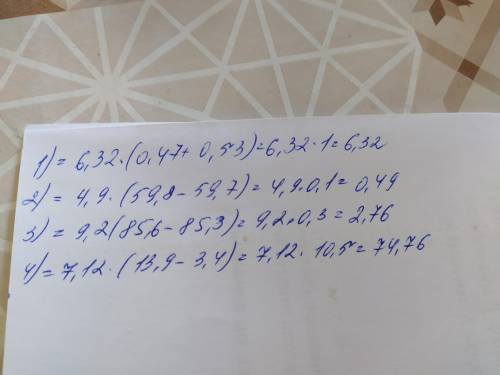 1) = 6,32·(0,47+0,53)=6,32·1=6,32
2) = 4,9·(59,8-59,7)=4,9·0,1=0,49
3) = 9,2(85,6-85,3)=9,2·0,3=2,76
4) = 7,12·(13,9-3,4)=7,12·10,5=74,76